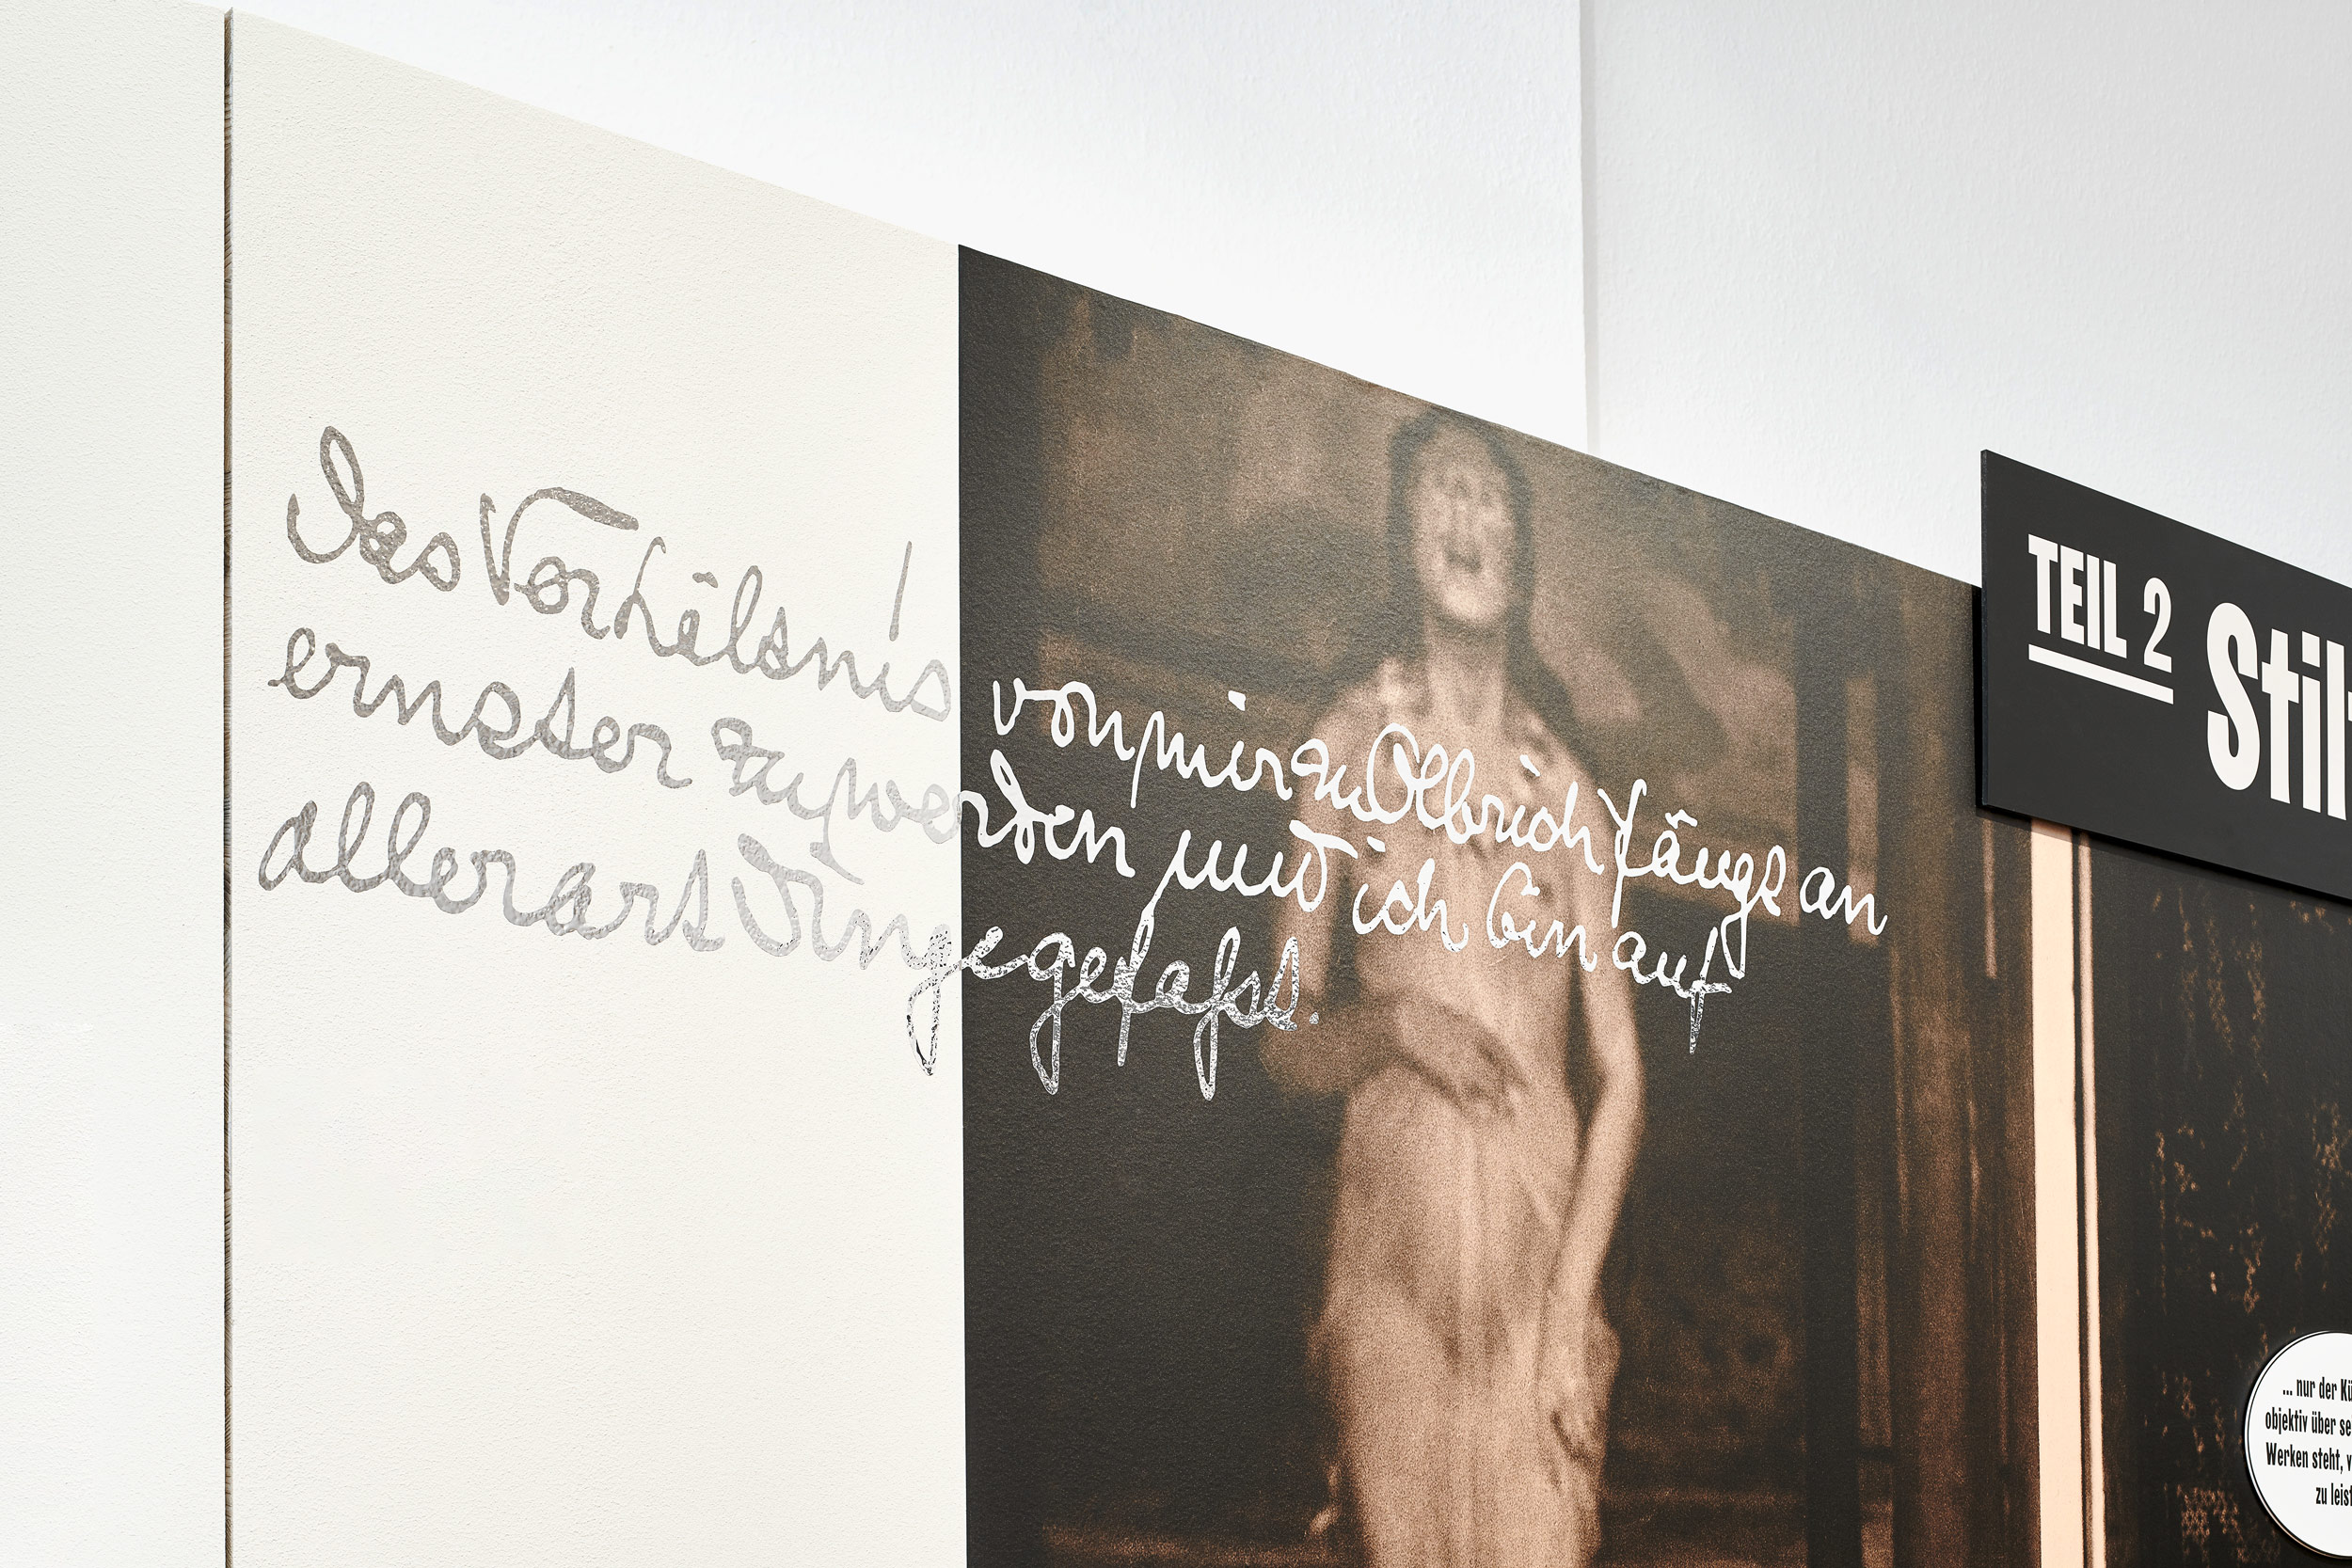 Das Verhältnis von mir zu Olbrich fängt an
ernster zu werden und ich bin auf
allerart Dinge gefasst.
TEIL 2
Stil
... nur der
objektiv über
Werken steht,
zu